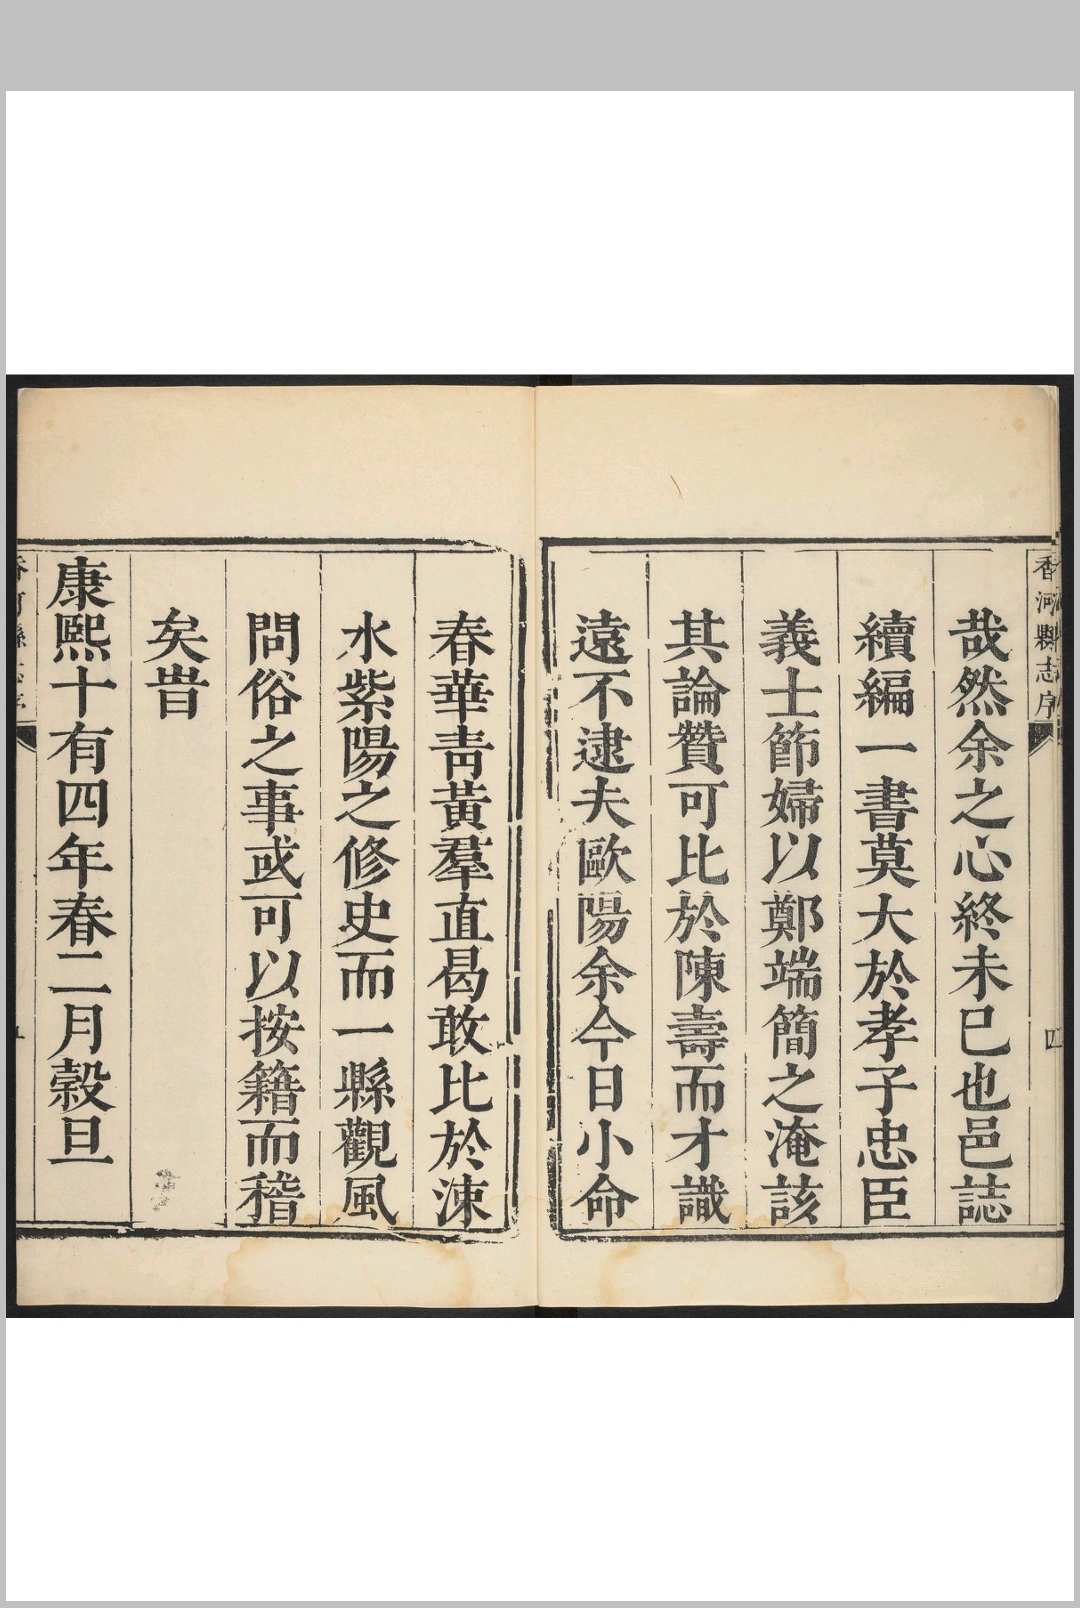 香河縣志序
四
哉然余之心終未已也邑誌
續編一書莫大於孝子忠臣
義士節婦以鄭端簡之淹該
其論贊可比於陳壽而才識
遠不逮夫歐陽余今日小命
春華靑黃羣直曷敢比於涑
水紫陽之修史而一縣觀風
問俗之事或可以按籍而稽
矣旹
康熙十有四年春二月穀旦